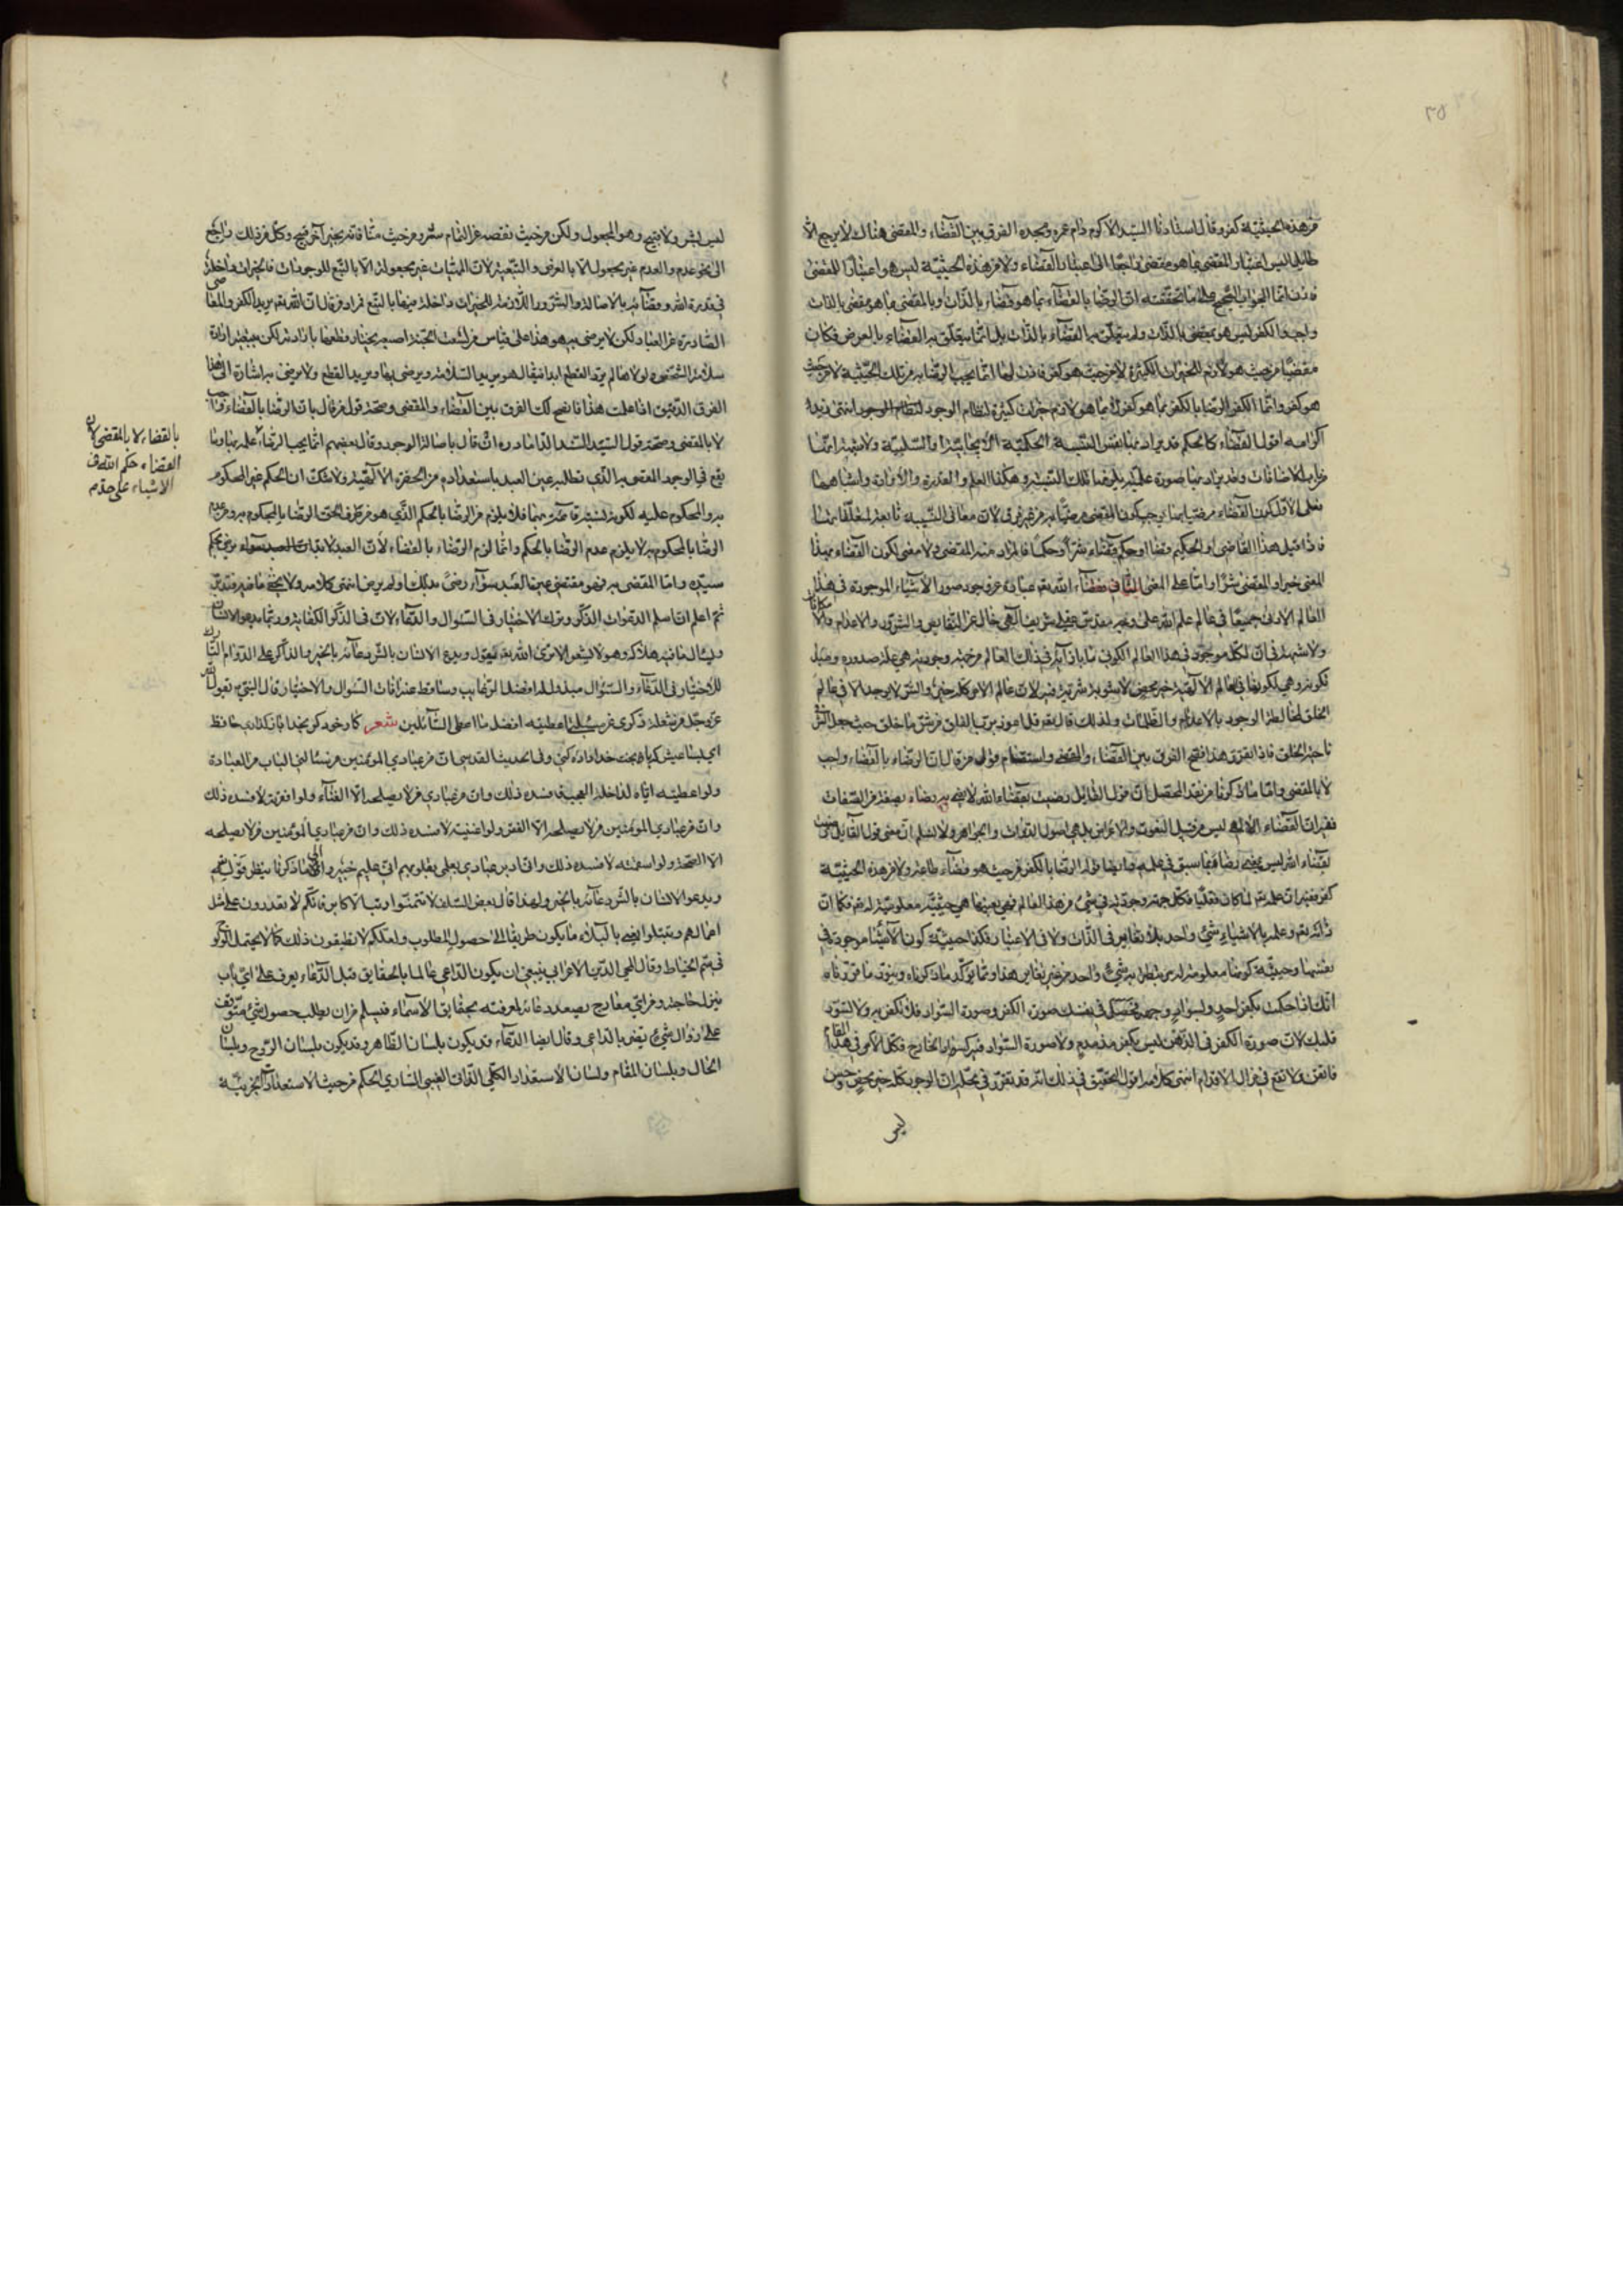 ٣٥
من هذه الحيثيّة كفر وقال استاذنا السيد الاكرم دام عمره ومجده الفرق بين القضاء والمقضى هناك لا يرجع الا
طايل اليس اعتبار المقضى بما هو مقضى راجعا الى اعتبار القضاء ولا من هذه الحيثيّة ليس هو اعتبار المقضى
فاذن انما الجواب الصحيح على ما تحققته ان الرضا بالقضاء بما هو قضاء بالذات وبالمقضى بما هو مقضى بالذات
واجب والكفر ليس هو بمقضى بالذات ولم يتعلق به القضاء بالذات بل انما يتعلق به القضاء بالعرض فكان
مقضيا من حيث هو لازم للخيرات الكثيرة لا من حيث هو كفر فاذن انما يجب الرضا به من تلك الحيثية لا من حيث
هو كفر وانما الكفر الرضا بالكفر بما هو كفر لا بما هو لازم خيرات كثيرة لنظام الوجود انتهى زيد
اكرامه اقول القضاء كالحكم قد يراد بها نفس النسبة الحكمية الايجابية او السلبية ولا شبهة انها
من باب الاضافات وقد يراد بها صورة علمية يلزمها تلك النسبة وهكذا العلم والقدرة والارادة واشباهها
فعلى الاول كون القضاء مرضيا بها يوجب كون المقضى مرضيا به من غير فرق لان معانى النسبة تابعة لمتعلقاتها
فاذا قيل هذا القاضى او الحكيم قضا او حكم قضاء شرا وحكما فالمراد منه المقضى ولا معنى لكون القضاء بهذا
المعنى خيرا والمقضى شرا واما على المعنى الثانى فقضاء الله تعالى عبارة عن وجود صور الاشياء الموجودة فى هذا
العالم الادنى جميعا فى عالم علم الله على وجه مقدس عقلى شريف الهى خال عن النقايص والشرور والاعدام والامكانات
ولا شبهة فى ان لكل موجود فى هذا العالم الكونى ما بازائه فى ذلك العالم من جهة وجودية هى علة صدوره ومبدء
تكونه وهى لكونها فى عالم الالهية خير محض لا يشوبه شرية فيه لان عالم الامر كله خير والشر لا يوجد الا فى عالم
الخلق لمخالطة الوجود بالاعدام والظلمات ولذلك قال تعالى قل اعوذ برب الفلق من شر ما خلق حيث جعل الشر
ناحية الخلق فاذا تقرر هذا فتح الفرق بين القضاء والمقضى واستقام قول من قال ان الرضاء بالقضاء واجب
لا بالمقضى واما ما ذكره فى نقد المحصل ان قول القائل رضيت بقضاء الله لا يعنى به رضاه بصفة من الصفات
ففيه ان القضاء الالهى ليس من قبيل النعوت والاعراض بل هى اصول الذوات والجواهر ولا نسلم ان معنى قول القايل رضيت
بقضاء الله ليس بمعنى رضا فيما سبق فى علمه وايضا قوله الرضا بالكفر من حيث هو قضاء طاعة ولا من هذه الحيثية
كفر ففيه ان علمه تعالى لما كان فعليا فكل جهة وجودية فى شىء من هذا العالم فهى بعينها هى حيثية معلوميته له تعالى فكما ان
ذاته تعالى وعلمه بالاشياء شىء واحد بلا تغاير فى الذات ولا فى الاعتبار فكذا حيثية كون الاشياء موجودة فى
نفسها وحيثية كونها معلومة له مرتبطة به شىء واحد من غير تغاير هذا ومما يؤكد ما ذكرناه وينور ما قررناه
انك اذا حكمت بكفر احد ولسواد وجهه تحصل فى نفسك صورة الكفر وصورة السواد فلا تكفر به ولا يسود
قلبك لان صورة الكفر فى الذهن ليس بكفر مذموم ولا صورة السواد فيه كسواد الخارج فكل الامر فى هذا المقام
فاتقن ولا تقع فى مزال الاقدام انتهى كلامه اقول التحقيق فى ذلك انه قد تقرر فى محله ان الوجود كله خير محض وحسن
ليس
ليس بشر ولا قبيح وهو المجعول ولكن من حيث نقصه عن التمام شر ومن حيث منافاته لخير آخر قبيح وكل من ذلك راجع
الى نحو عدم والعدم غير مجعول الا بالعرض والتبعية لان الماهيات غير مجعولة الا بالتبع للوجودات فالخيرات داخلة
فى قدرة الله وقضائه بالاصالة والشرور اللازمة للخيرات داخلة فيها بالتبع فمراد من قال ان الله تعالى يريد الكفر والمعاصى
الصادرة عن العباد لكن لا يرضى به هو هذا على قياس من لسعت الحية اصبعه يختار قطعها بارادته لكن بتبعية ارادة
سلامة الشخص ولولاها لم يرد القطع ابدا فيقال هو يريد السلامة ويرضى بها ويريد القطع ولا يرضى به اشارة الى هذا
الفرق الدقيق اذا علمت هذا فاتضح لك الفرق بين القضاء والمقضى وصحة قول من قال بان الرضا بالقضاء واجب
لا بالمقضى وصحة قول السيد السند الداماد ره ان قال باصالة الوجود وقال بعضهم انما يجب الرضاء
بالقضاء لا بالمقضى لان
القضاء حكم الله فى
الاشياء على حد
يقع فى الوجود المقضى به الذى تطلبه عين العبد باستعداده من الحضرة الالهية ولا شك ان الحكم غير المحكوم
به والمحكوم عليه لكونه نسبة قائمة بهما فلا يلزم من الرضا بالحكم الذى هو من طرف الحق الرضا بالمحكوم به ومن عدم
الرضا بالمحكوم به لا يلزم عدم الرضا بالحكم وانما لزم الرضاء بالقضاء لان العبد لا بد ان يرضى بحكم
سيده واما المقضى به فهو مقتضى عين العبد سواء رضى بذلك او لم يرض انتهى كلامه ولا يخفى ما فيه فتدبر
ثم اعلم ان اسلم الدعوات الذكر وترك الاختيار فى السؤال والدعاء لان فى الذكر الكفاية وربما يدعو الانسان
ويسأل ما فيه هلاكه وهو لا يشعر الا ترى الله تعالى يقول ويدع الانسان بالشر دعائه بالخير والذاكر على الدوام التارك
للاختيار فى الدعاء والسؤال مبذول له افضل الرغايب وساقط عنه افات السؤال والاختيار قال النبى يقول الله
عز وجل من شغله ذكرى عن مسئلتى اعطيته افضل ما اعطى السائلين شعر كار خود گر بخدا باز گذارى حافظ
اى بسا عيش كه با بخت خداداده كنى وفى الحديث القدسى ان من عبادى المؤمنين من يسالنى الباب من العبادة
ولو اعطيته اياه لداخله العجب فسده ذلك وان من عبادى من لا يصلحه الا الغناء ولو افقرته لافسده ذلك
وان من عبادى المؤمنين من لا يصلحه الا الفقر ولو اغنيته لافسده ذلك وان من عبادى المؤمنين من لا يصلحه
الا الصحة ولو اسقمته لافسده ذلك وانى ادبر عبادى بعلمى بقلوبهم انى عليم خبير والى ما ذكرنا ينظر قوله تعالى
ويدعو الانسان بالشر دعائه بالخير ولهذا قال بعض السلف لا تتمنوا رتبة الاكابر فانكم لا تقدرون على مثل
اعمالهم ويبتلوا بعض بالبلاء ما يكون طريقا الى حصول المطلوب ولعلكم لا تطيقون ذلك كما لا يحتمل
فى سم الخياط وقال محى الدين الاعرابى ينبغى ان يكون الداعى عالما بالحقايق قبل الدعاء يعرف على اى باب
ينزل حاجته ومن اى معارج يصعد دعائه لمعرفته بحقايق الاسماء فيسلم من ان يطلب حصول شىء متوقف
على زوال شىء يضر بالداعى وقال ايضا الدعاء قد يكون بلسان الظاهر وقد يكون بلسان الروح وبلسان
الحال وبلسان المقام ولسان الاستعداد الكلى الذاتى الغيبى السارى الحكم من حيث الاستعدادات الجزئية